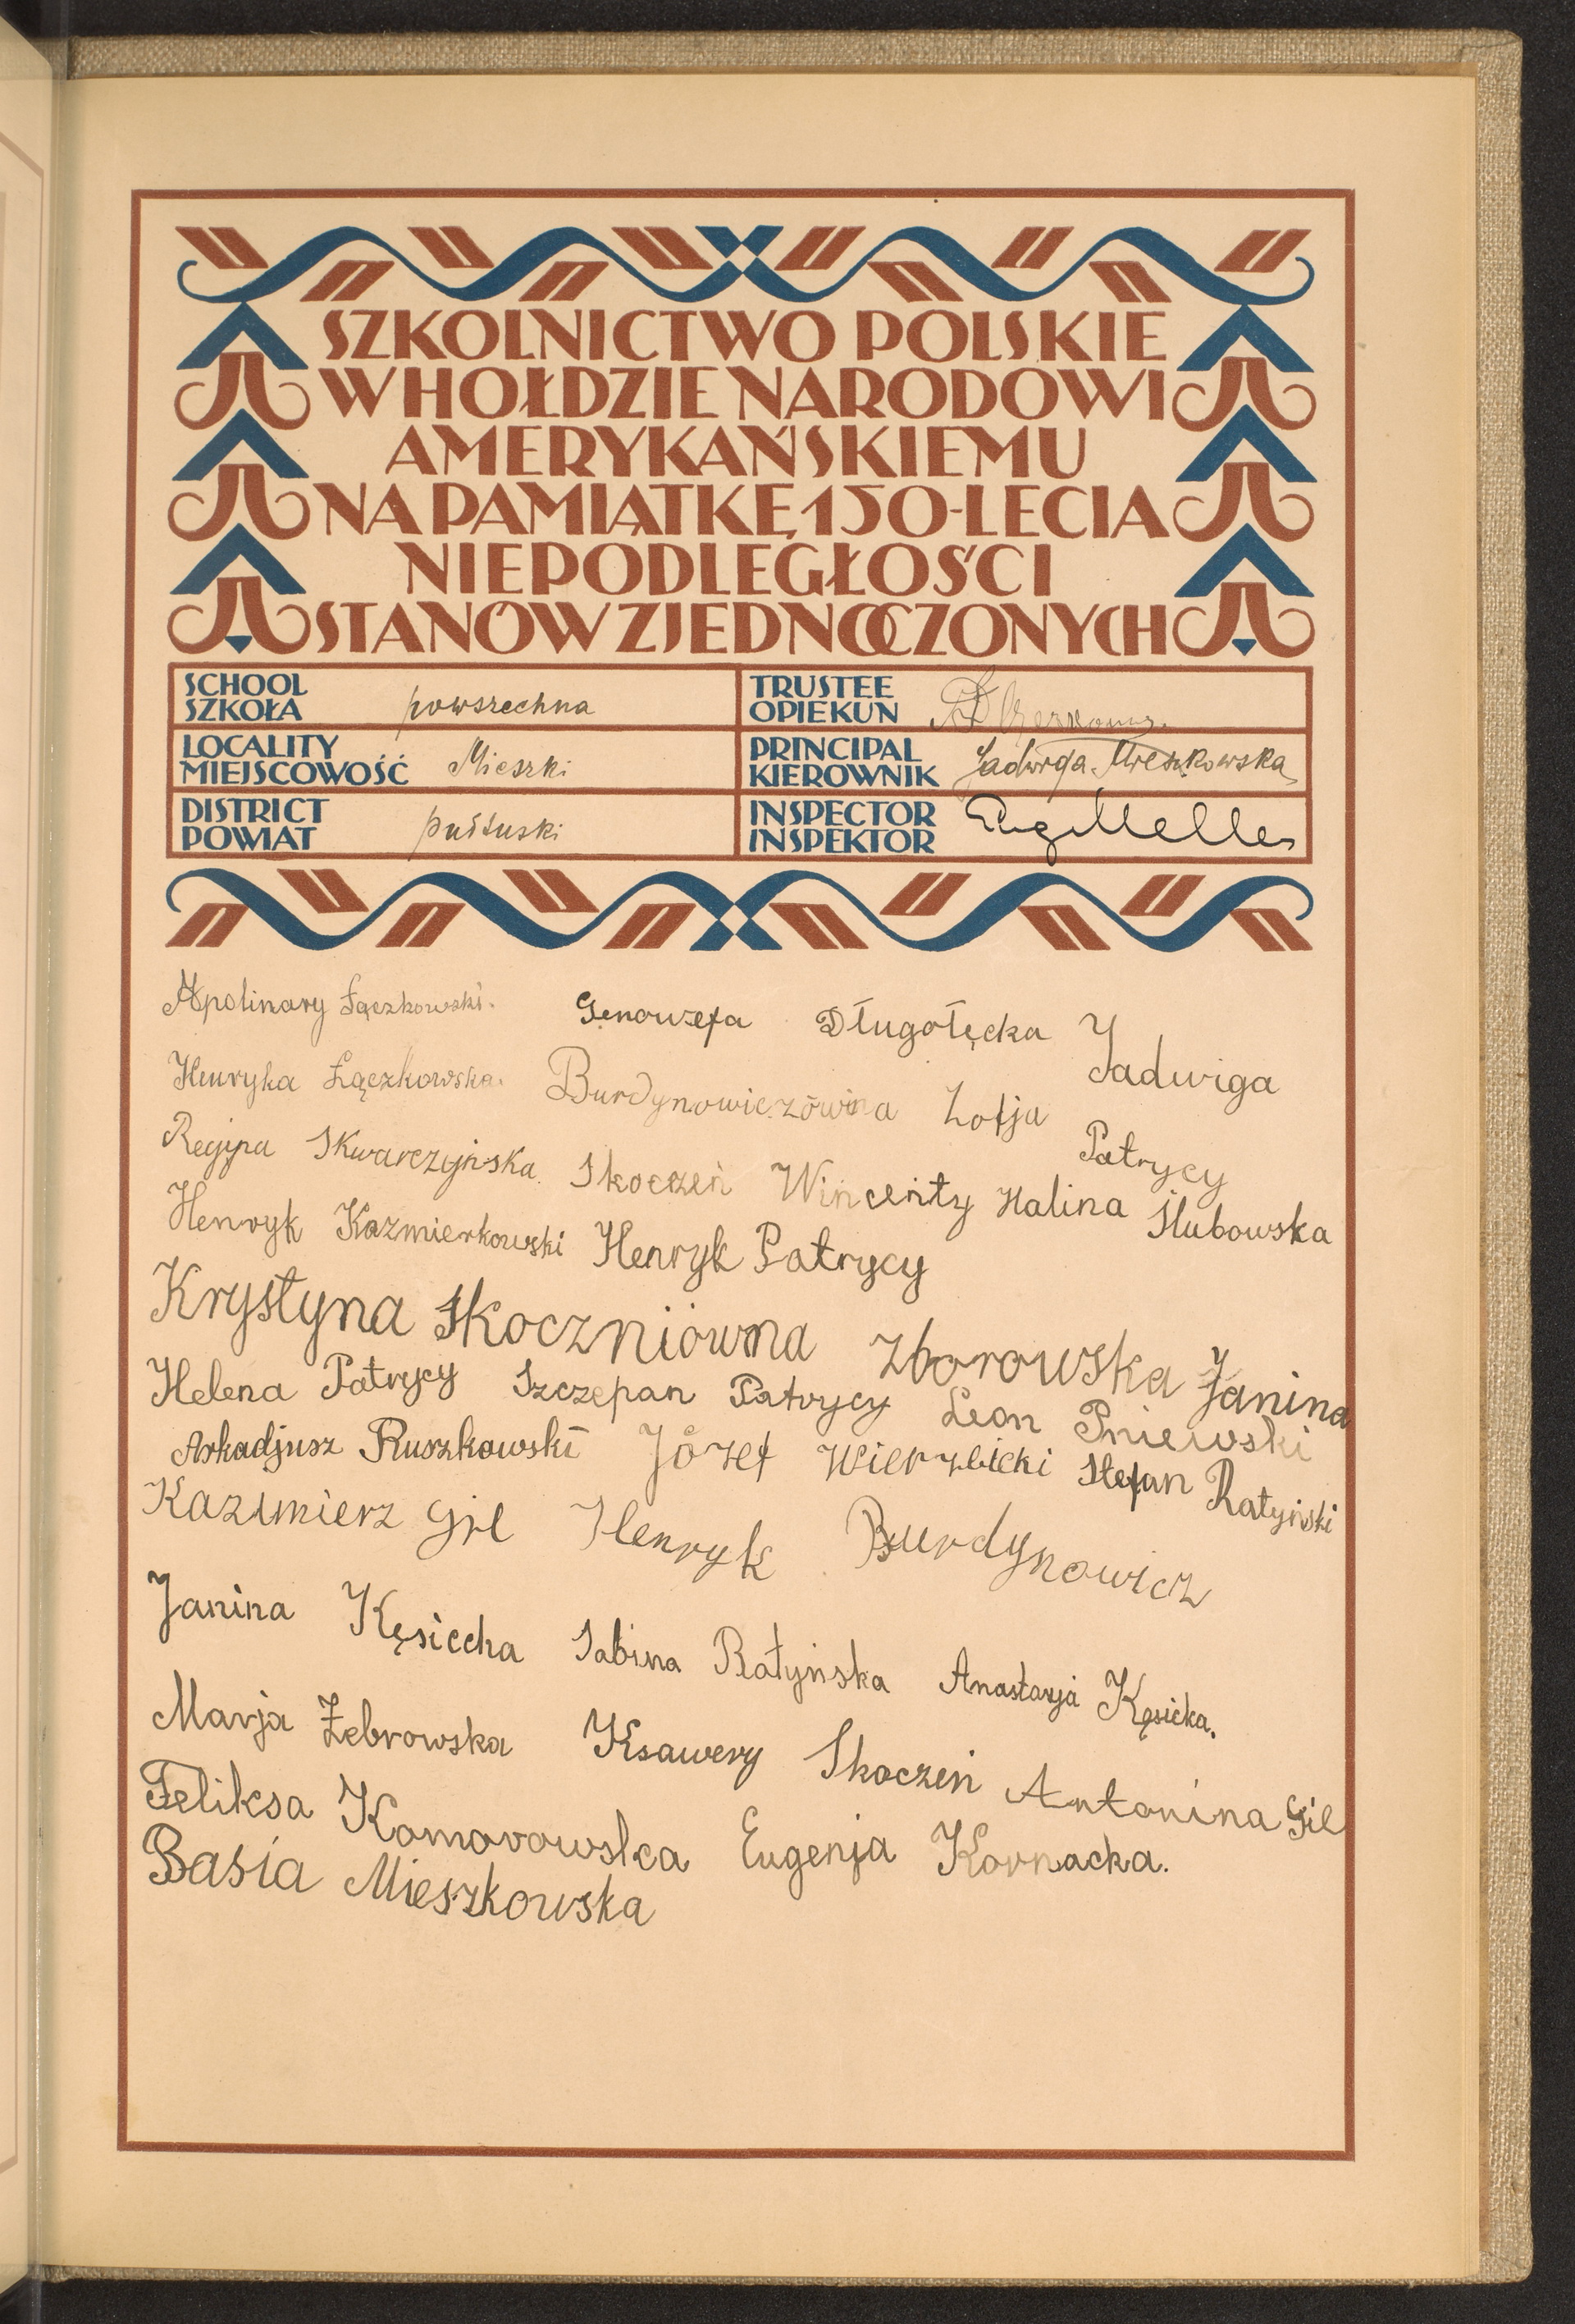 SZKOLNICTWO POLSKIE
W HOŁDZIE NARODOWI
AMERYKAŃSKIEMU
NA PAMIĄTKĘ 150-LECIA
NIEPODLEGŁOŚCI
STANÓW ZJEDNOCZONYCH
SCHOOL
SZKOŁA powszechna
TRUSTEE
OPIEKUN
LOCALITY
MIEJSCOWOŚĆ Mieszki
PRINCIPAL
KIEROWNIK Jadwiga Mieszkowska
DISTRICT
POWIAT pułtuski
INSPECTOR
INSPEKTOR
Apolinary Łączkowski. Genowefa Długołęcka Jadwiga
Henryka Łączkowska. Burdynowiczówna Zofja Patrycy
Regina Skwarczyńska. Skoczeń Wincenty Halina Słubowska
Henryk Kazmierkowski Henryk Patrycy
Krystyna Skoczniówna Zborowska Janina
Helena Patrycy Szczepan Patrycy Leon Pniewski
Arkadjusz Ruszkowski Józef Wierzbicki Stefan Ratyński
Kazimierz Gil Henryk Burdynowicz
Janina Kęsiccka Sabina Ratyńska Anastazja Kęsicka.
Marja Żebrowska Ksawery Skoczeń Antonina Gil
Feliksa Komorowska Eugenja Kornacka.
Basia Mieszkowska